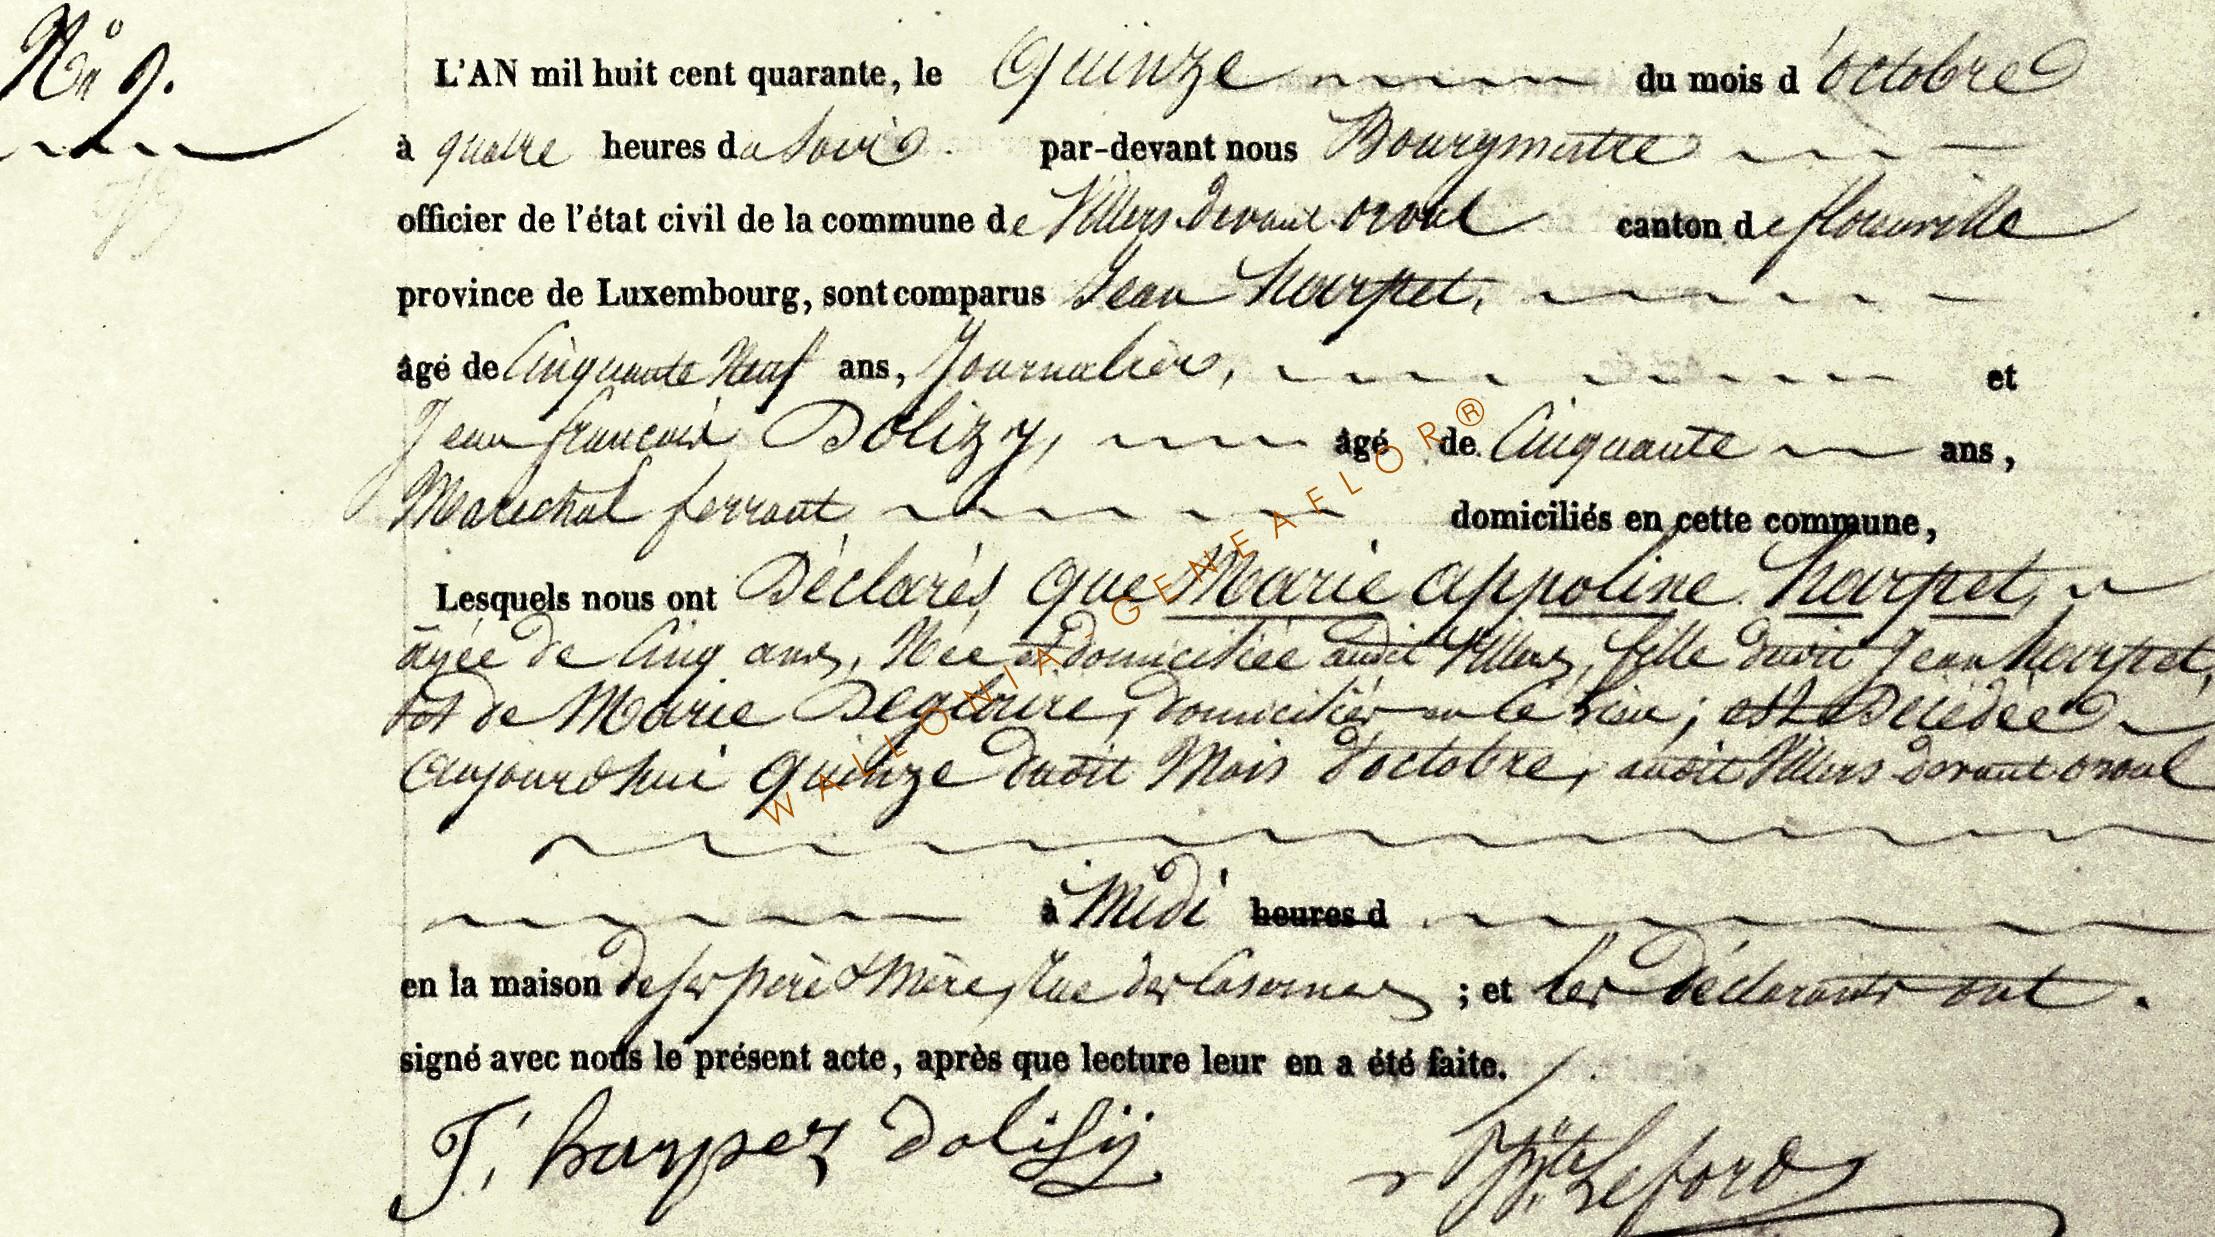 N° 9.
L'AN mil huit cent quarante, le Quinze du mois d'octobre
à quatre heures du Soir par-devant nous Bourgmestre
officier de l'état civil de la commune de Villers devant orval canton de florenville
province de Luxembourg, sont comparus Jean harpet,
âgé de Cinquante Neuf ans, Journalier, et
Jean françois Dolizy, âgé de Cinquante ans,
Marechal ferrant domiciliés en cette commune,
Lesquels nous ont Déclarés que Marie appoline harpet,
âgée de Cinq ans, Née et domiciliée audit Villers, fille dudit Jean harpet,
et de Marie Degloire, domiciliés en ce Lieu; est Décédée
aujourdhui quinze dudit Mois d'octobre, audit Villers devant orval
à Midi heures d
en la maison de ses père & Mère, Rue des Casernes ; et les déclarants ont.
signé avec nous le présent acte, après que lecture leur en a été faite.
J. harpez dolisij
Leford
WALLONIA GENEAELOR®